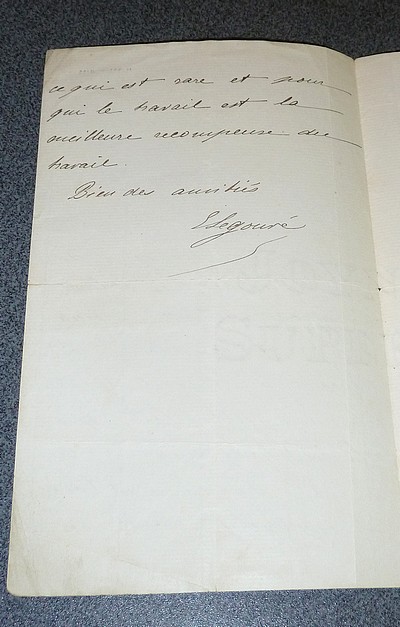 ce qui est rare et pour
qui le travail est la
meilleure recompense du
travail.
Bien des amitiés
E Legouvé